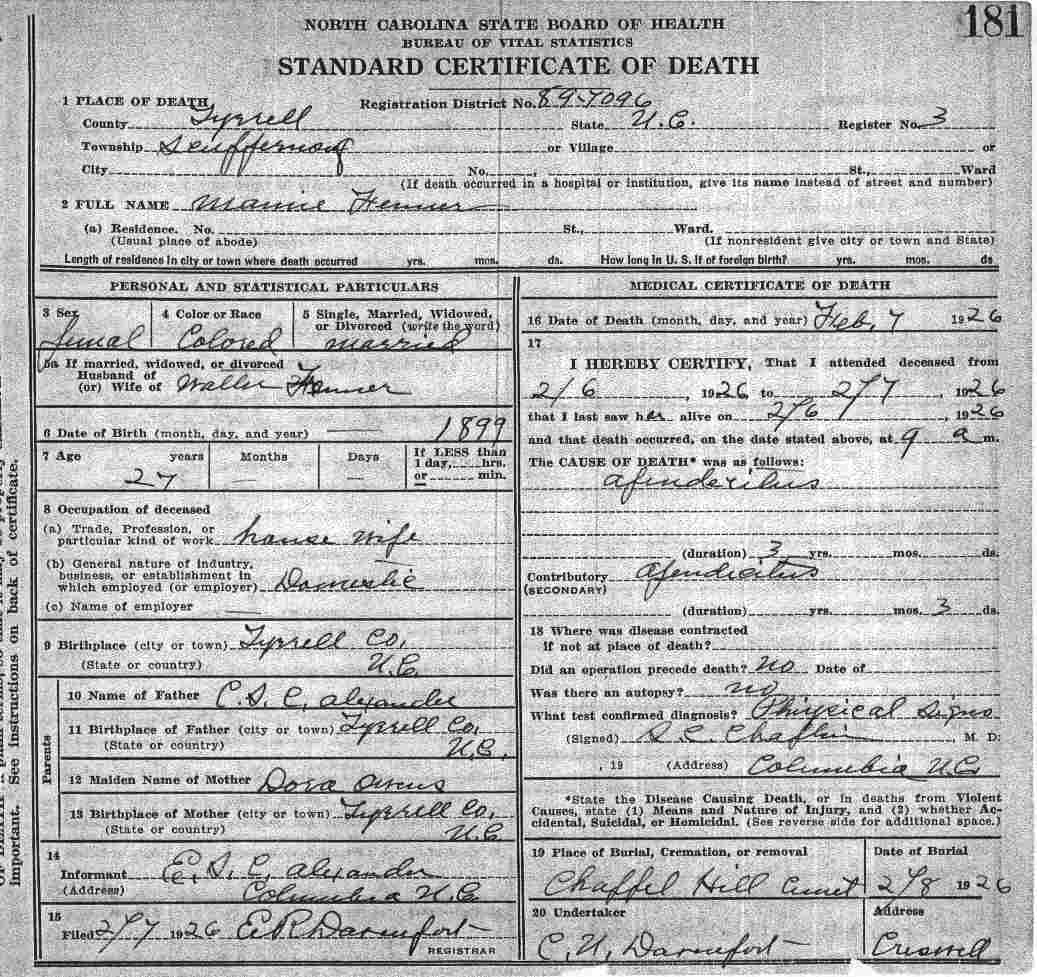 181
NORTH CAROLINA STATE BOARD OF HEALTH
BUREAU OF VITAL STATISTICS
STANDARD CERTIFICATE OF DEATH
1 PLACE OF DEATH Registration District No. 89-7096
County Tyrrell State N.C. Register No. 3
Township Scuppernong or Village or
City No. , St., Ward
(If death occurred in a hospital or institution, give its name instead of street and number)
2 FULL NAME Mamie Fenner
(a) Residence. No. St., Ward.
(Usual place of abode) (If nonresident give city or town and State)
Length of residence in city or town where death occurred yrs. mos. ds. How long in U. S. if of foreign birth? yrs. mos. ds.
PERSONAL AND STATISTICAL PARTICULARS
3 Sex 4 Color or Race 5 Single, Married, Widowed,
or Divorced (write the word)
femal Colored married
5a If married, widowed, or divorced
Husband of
(or) Wife of Walter Fenner
6 Date of Birth (month, day, and year) 1899
7 Age years Months Days If LESS than
1 day, hrs.
or min.
27
8 Occupation of deceased
(a) Trade, Profession, or
particular kind of work house wife
(b) General nature of industry,
business, or establishment in
which employed (or employer) Domestic
(c) Name of employer
9 Birthplace (city or town) Tyrrell Co,
(State or country) N.C.
Parents
10 Name of Father C. S. C. alexander
11 Birthplace of Father (city or town) Tyrrell Co,
(State or country) N.C.
12 Maiden Name of Mother Dora Owens
13 Birthplace of Mother (city or town) Tyrrell Co,
(State or country) N.C.
14
Informant E. S. C. alexander
(Address) Columbia N.C.
15
Filed 2/7 1926 E R Davenport
REGISTRAR
MEDICAL CERTIFICATE OF DEATH
16 Date of Death (month, day, and year) Feb, 7 1926
17
I HEREBY CERTIFY, That I attended deceased from
2/6 , 1926 to 2/7 , 1926
that I last saw her alive on 2/6 , 1926
and that death occurred, on the date stated above, at 9 a m.
The CAUSE OF DEATH* was as follows:
apendecitus
(duration) 3 yrs. mos. ds.
Contributory apendicitus
(SECONDARY)
(duration) yrs. mos. 3 ds.
18 Where was disease contracted
if not at place of death?
Did an operation precede death? no Date of
Was there an autopsy? no
What test confirmed diagnosis? Physical Signs
(Signed) S. C. Chaplin , M. D:
, 19 (Address) Columbia N.C.
*State the Disease Causing Death, or in deaths from Violent
Causes, state (1) Means and Nature of Injury, and (2) whether Ac-
cidental, Suicidal, or Homicidal. (See reverse side for additional space.)
19 Place of Burial, Cremation, or removal Date of Burial
Chappel Hill Cemet 2/8 1926
20 Undertaker Address
C. N. Davenport Creswell
important. See instructions on back of certificate.